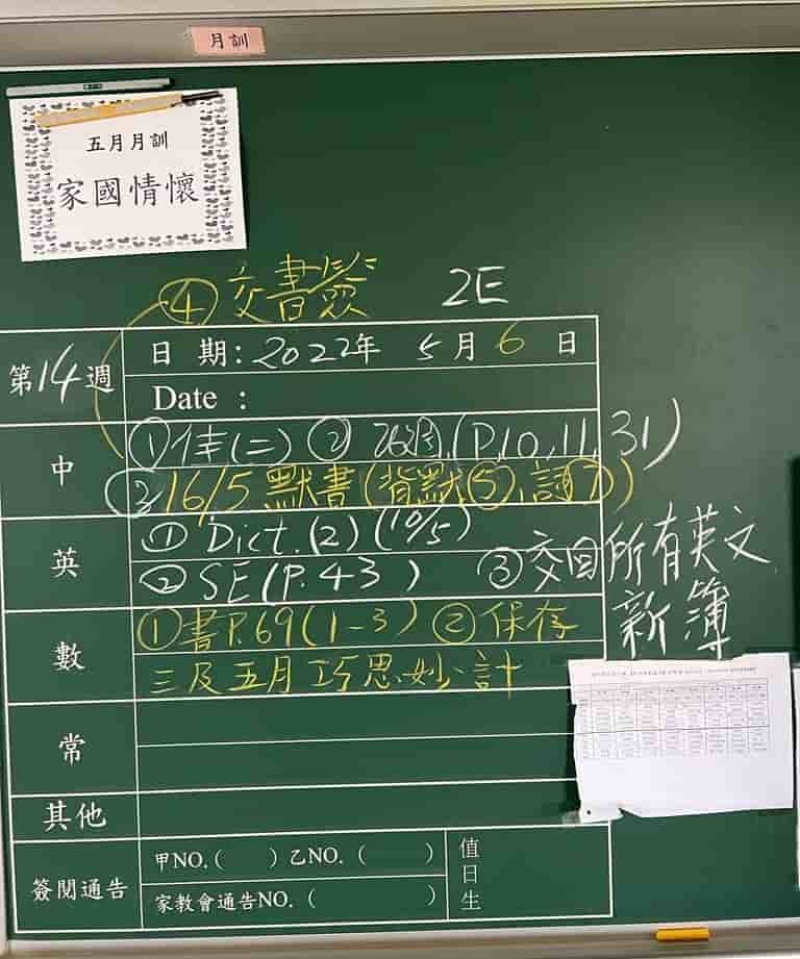 月訓
五月月訓
家國情懷
④ 交書簽 2E
第14週
日期: 2022年 5月 6日
Date :
中
① 作(二) ② (P.10, 11, 31)
③ 16/5 默書(背默⑤, 詞⑦)
英
① Dict. (2) (10/5)
② SE (P. 43) ③ 交回所有英文新簿
數
① 書P.69 (1-3) ② 保存
三及五月巧思妙計
常
其他
簽閱通告
甲NO. ( ) 乙NO. ( )
家教會通告NO. ( )
值日生